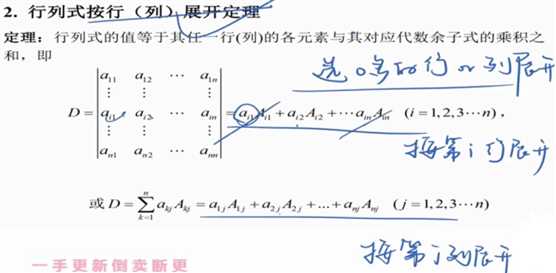 2. 行列式按行（列）展开定理
定理：行列式的值等于其任一行(列)的各元素与其对应代数余子式的乘积之
和，即
选0多的行 or 列展开
D = | a11 a12 ⋯ a1n |
| ⋮ ⋮ ⋮ |
| ai1 ai2 ⋯ ain | = ai1Ai1 + ai2Ai2 + ⋯ainAin (i = 1,2,3⋯n)，
| ⋮ ⋮ ⋮ |
| an1 an2 ⋯ ann |
按第i行展开
或 D = ∑_{k=1}^{n} akjAkj = a1jA1j + a2jA2j + ... + anjAnj (j = 1,2,3⋯n)
按第j列展开
一手更新倒卖断更